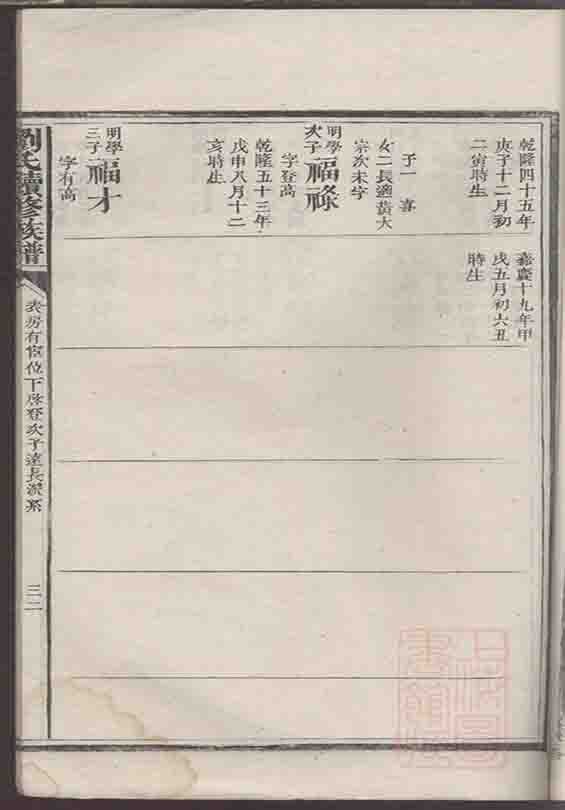 乾隆四十五年
庚子十二月初
二寅時生
子一 喜
女二長適黃大
宗次未字
明學
次子
福祿
字登高
乾隆五十三年
戊申八月十二
亥時生
明學
三子
福才
字有高
嘉慶十九年甲
戌五月初六丑
時生
劉氏續修族譜
表房有宦位下啟登次子遠長派系
三二